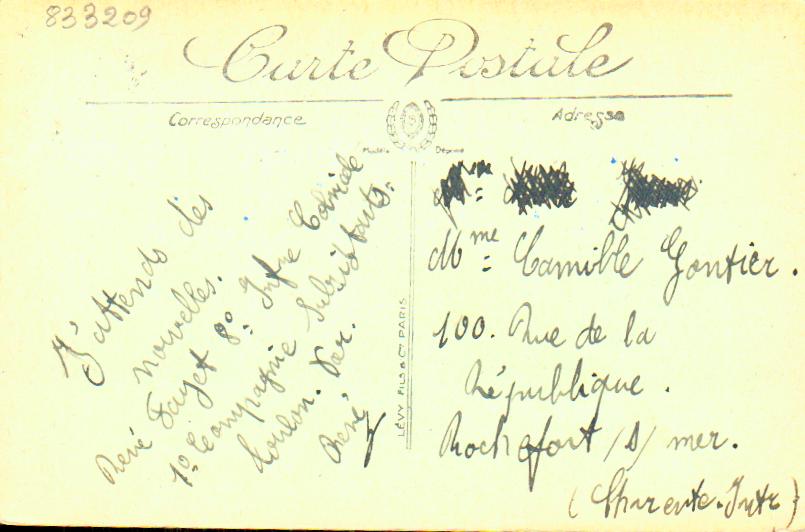 833209
Carte Postale
Correspondance
Adresse
Modèle Déposé
J'attends des
nouvelles.
René Fayet 8º Infie Coloniale
1º Compagnie Subsistants.
Toulon. Var.
René
LÉVY FILS & Cie PARIS
Mme Camille Gontier.
100. Rue de la
République.
Rochefort /s/ mer.
(Charente-Infre)